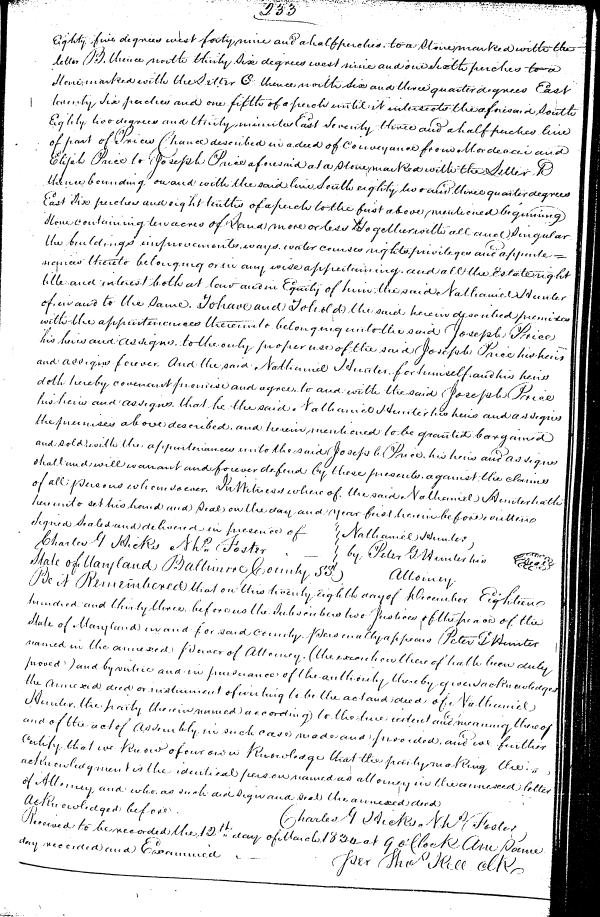 253
Eighty five degrees west forty nine and a half perches to a Stone marked with the
letter B. thence north thirty six degrees west nine and one sixth perches to a
stone marked with the Letter C thence north six and three quarter degrees East
twenty six perches and one fifth of a perch until it intersects the aforesaid South
Eighty two degrees and thirty minutes East Seventy three and a half perches line
of part of Prices Chance described in a deed of Conveyance from Mordecai and
Elijah Price to Joseph Price aforesaid at a Stone marked with the Letter D
thence bounding on and with the said line South eighty two and three quarter degrees
East Six perches and eight tenths of a perch to the first above mentioned beginning
Stone containing ten acres of Land more or less Together with all and Singular
the buildings improvements ways water courses rights privileges and appurte=
nances thereto belonging or in any wise appertaining and all the Estate right
title and interest both at law and in Equity of him the said Nathaniel Hunter
of in and to the same. To have and To hold the said herein described premises
with the appurtenances thereunto belonging unto the said Joseph Price
his heirs and assigns to the only proper use of the said Joseph Price his heirs
and assigns forever. And the said Nathaniel Hunter for himself and his heirs
doth hereby covenant promise and agree to and with the said Joseph Price
his heirs and assigns that he the said Nathaniel Hunter his heirs and assigns
the premises above described and herein mentioned to be granted bargained
and sold with the appurtenances unto the said Joseph Price his heirs and assigns
shall and will warrant and forever defend by these presents against the claims
of all persons whomsoever. In Witness whereof the said Nathaniel Hunter hath
hereunto set his hand and Seal on the day and year first herein before written
Signed Sealed and delivered in presence of } Nathaniel Hunter
Charles G Hicks Nhs. Foster } by Peter G Hunter his Seal
State of Maryland Baltimore County Sst Attorney
Be it Remembered that on this twenty eighth day of December Eighteen
hundred and thirty three before us the Subscribers two Justices of the peace of the
State of Maryland in and for said County personally appears Peter G Hunter
named in the annexed Power of Attorney (the execution thereof hath been duly
proved) and by virtue and in pursuance of the authority thereby given acknowledges
the annexed deed or instrument of writing to be the act and deed of Nathaniel
Hunter the party therein named according to the true intent and meaning thereof
and of the act of Assembly in such case made and provided and we further
Certify that we know of our own Knowledge that the party making the
acknowledgment is the identical person named as attorney in the annexed letter
of Attorney and who as such did Sign and Seal the annexed deed
Acknowledged before Charles G Hicks Nhs Foster
Received to be recorded the 12th day of March 1834 at 9 o'Clock Am Same
day recorded and Examined per Thos Kell Clk